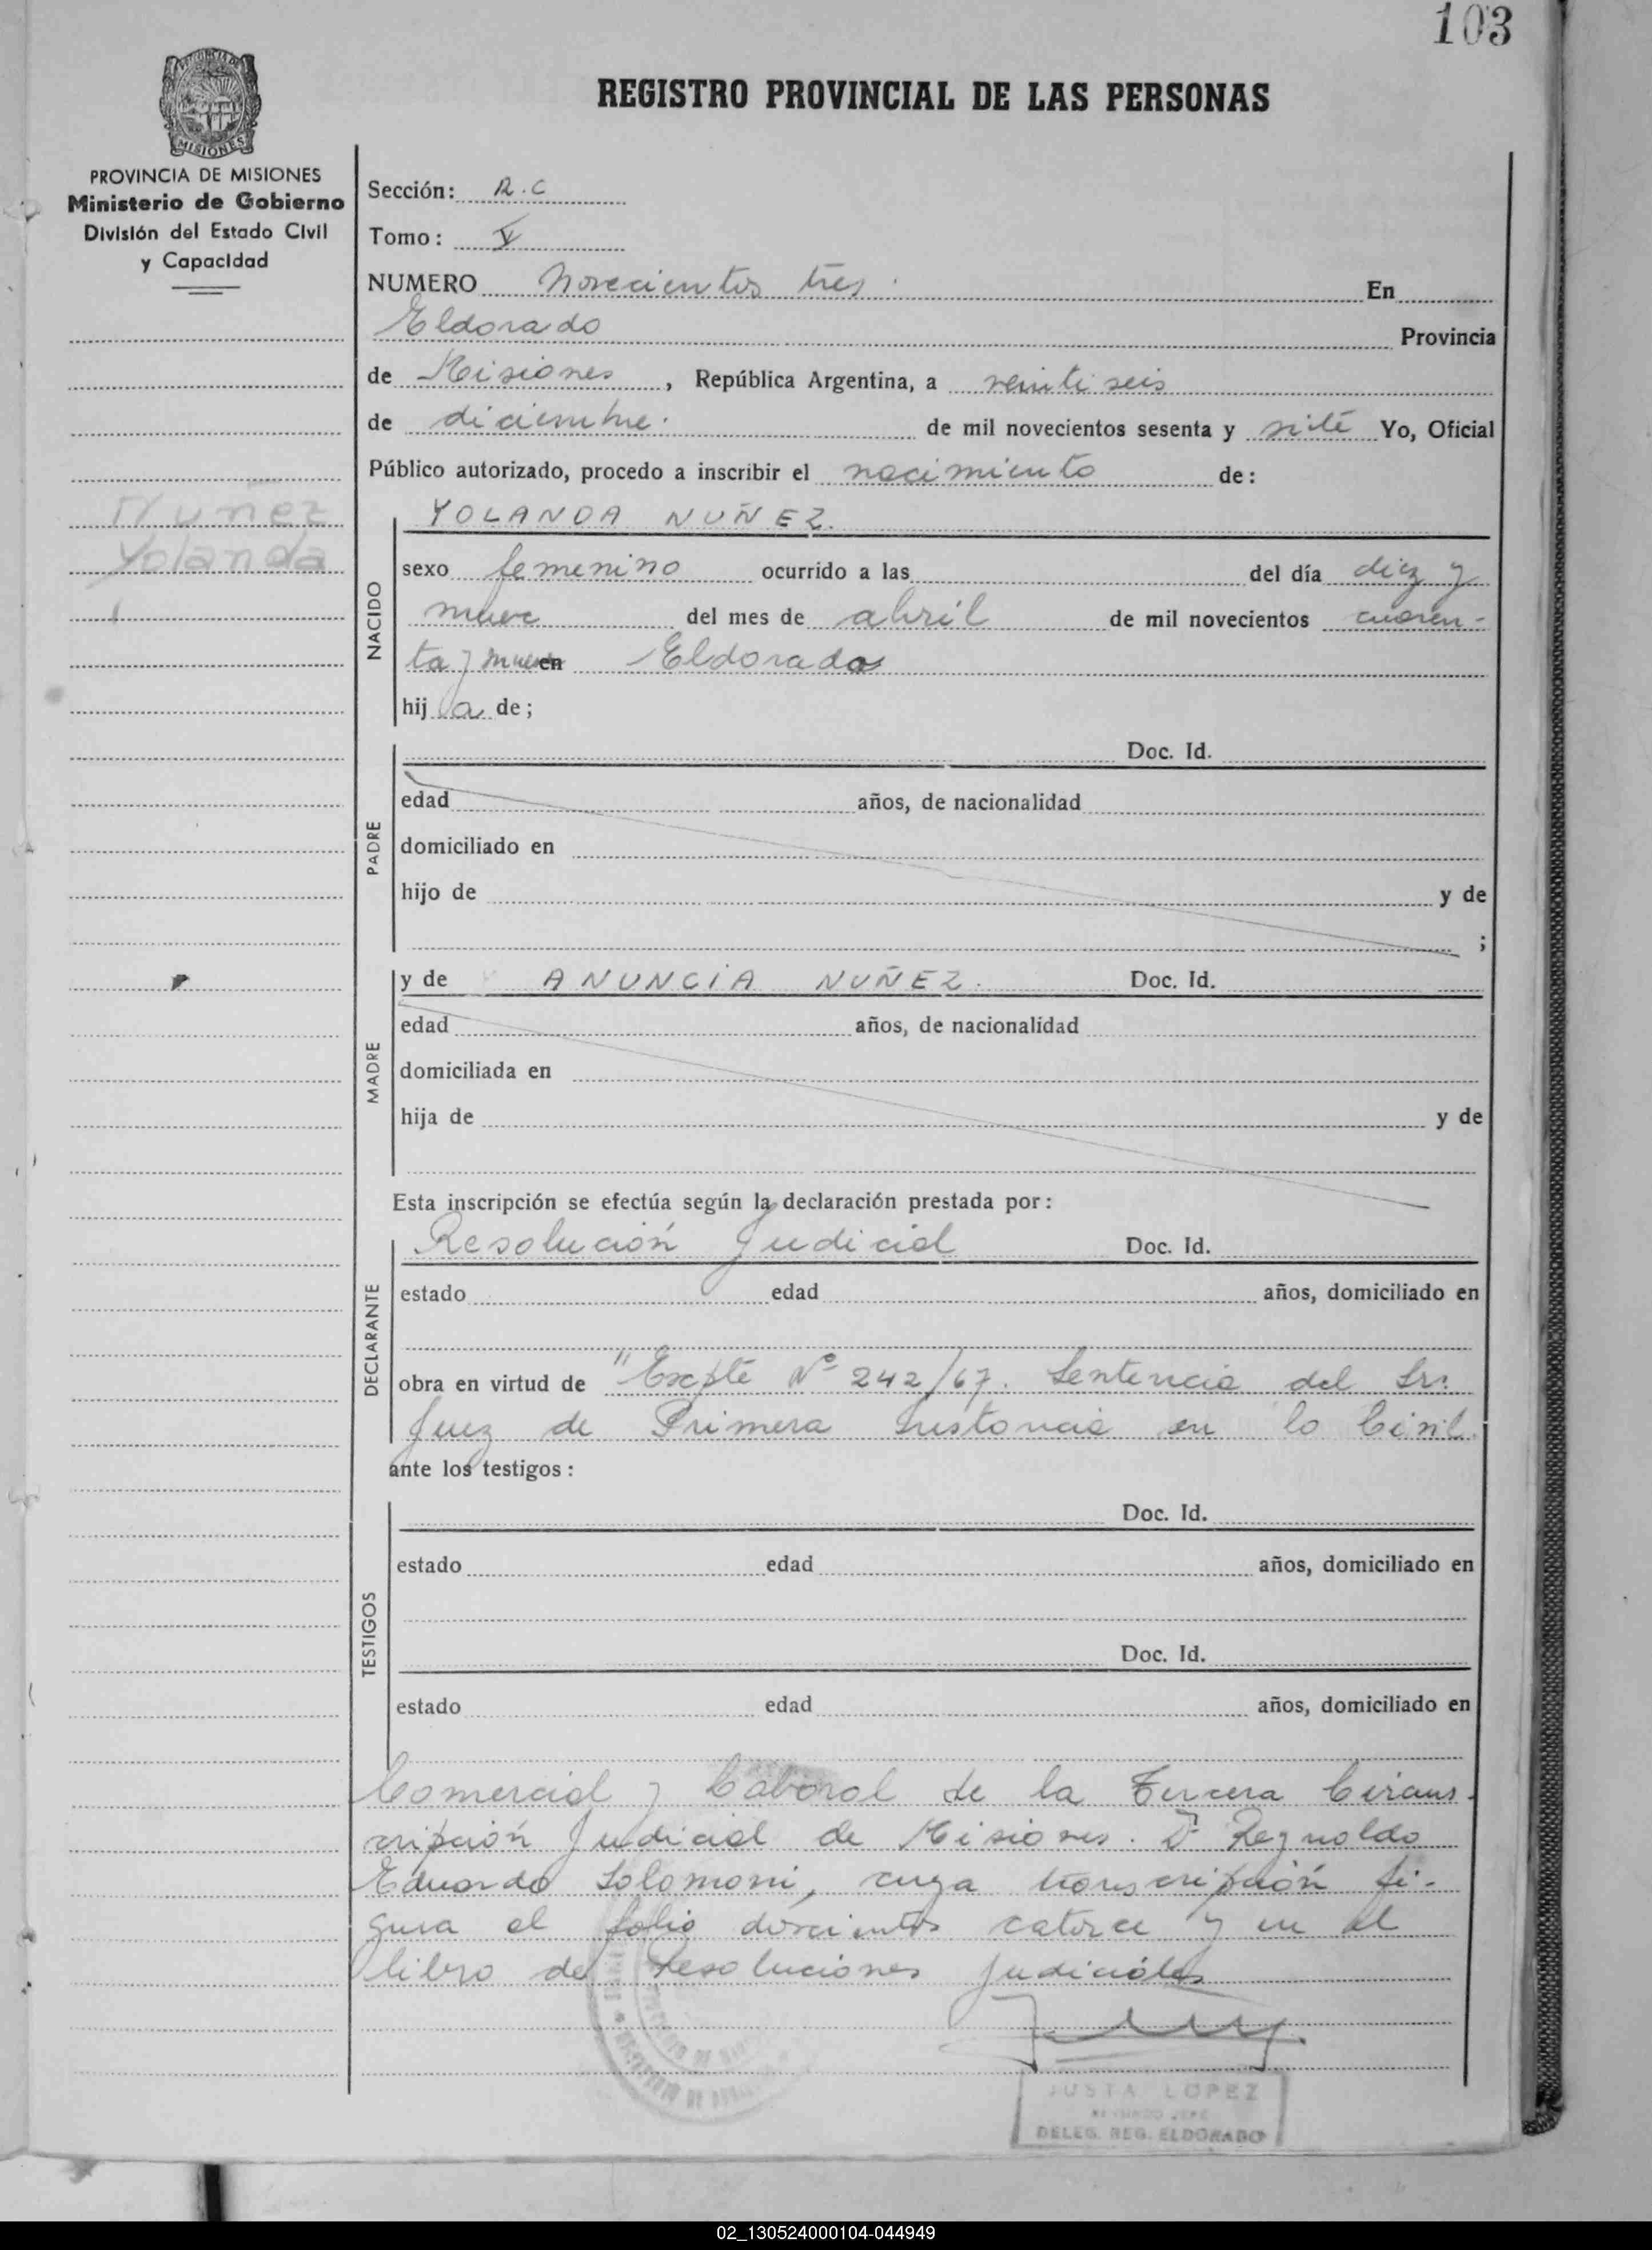 103
REGISTRO PROVINCIAL DE LAS PERSONAS
MISIONES
PROVINCIA DE MISIONES
Ministerio de Gobierno
División del Estado Civil
y Capacidad
Sección: R.C
Tomo: V
NUMERO Novecientos tres. En
Eldorado Provincia
de Misiones, República Argentina, a veinti seis
de diciembre. de mil novecientos sesenta y siete Yo, Oficial
Público autorizado, procedo a inscribir el nacimiento de:
Nuñez
Yolanda
NACIDO
YOLANDA NUÑEZ.
sexo femenino ocurrido a las del día diez y
nueve del mes de abril de mil novecientos cuaren-
ta y nueve en Eldorado
hij a de;
PADRE
Doc. Id.
edad años, de nacionalidad
domiciliado en
hijo de y de
;
MADRE
y de ANUNCIA NUÑEZ. Doc. Id.
edad años, de nacionalidad
domiciliada en
hija de y de
Esta inscripción se efectúa según la declaración prestada por:
DECLARANTE
Resolución Judicial Doc. Id.
estado edad años, domiciliado en
obra en virtud de "Expte Nº 242/67. Sentencia del Sr.
Juez de Primera Instancia en lo Civil.
ante los testigos:
TESTIGOS
Doc. Id.
estado edad años, domiciliado en
Doc. Id.
estado edad años, domiciliado en
Comercial y Laboral de la Tercera Circuns-
cripción Judicial de Misiones. Dr Reynaldo
Eduardo Solomoni, cuya transcripción fi-
gura al folio doscientos catorce y en el
libro de Resoluciones Judiciales
JUSTA LOPEZ
DELEG. REG. ELDORADO
02_130524000104-044949